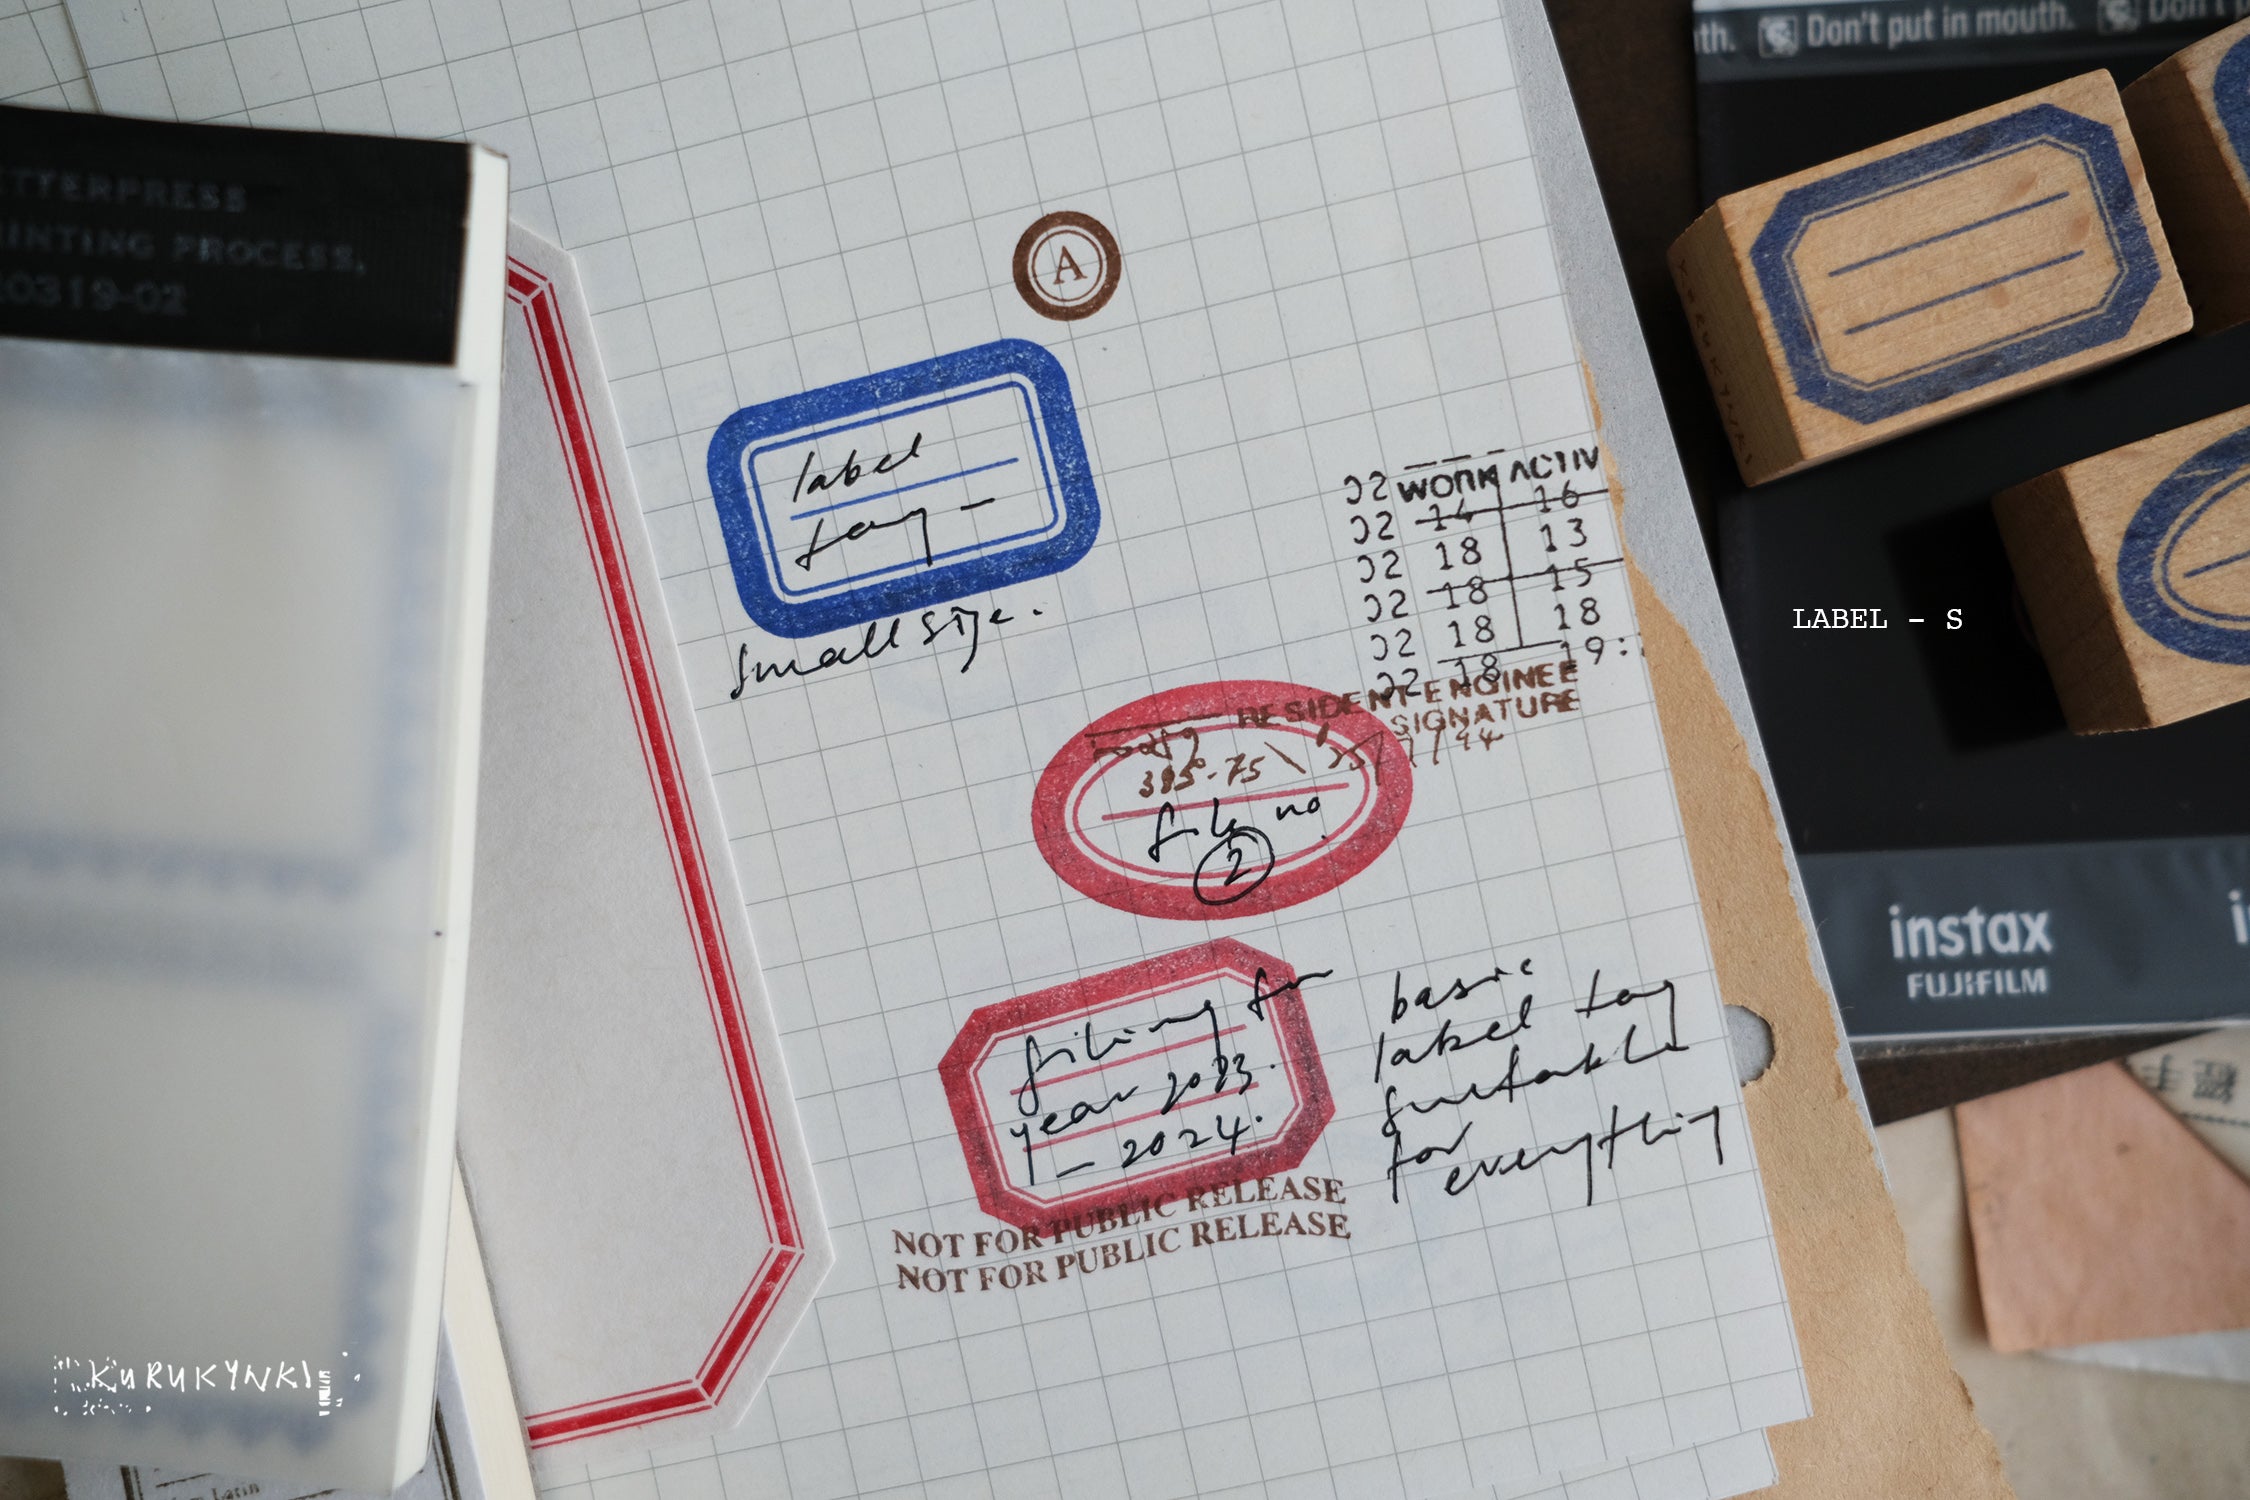 th. Don't put in mouth.
ETTERPRESS
RINTING PROCESS,
20319-02
A
label
tag -
small size.
02 WORK ACTIV
02 14 16
02 18 13
02 18 15
02 18 18
02 18 19:
RESIDENT ENGINEE
SIGNATURE
395.75
file no.
2
filing for
year 2023.
- 2024.
NOT FOR PUBLIC RELEASE
NOT FOR PUBLIC RELEASE
basic
label tag
suitable
for
everything
KURUKYNKI
LABEL - S
instax
FUJIFILM
KURUKYNKI
Latin